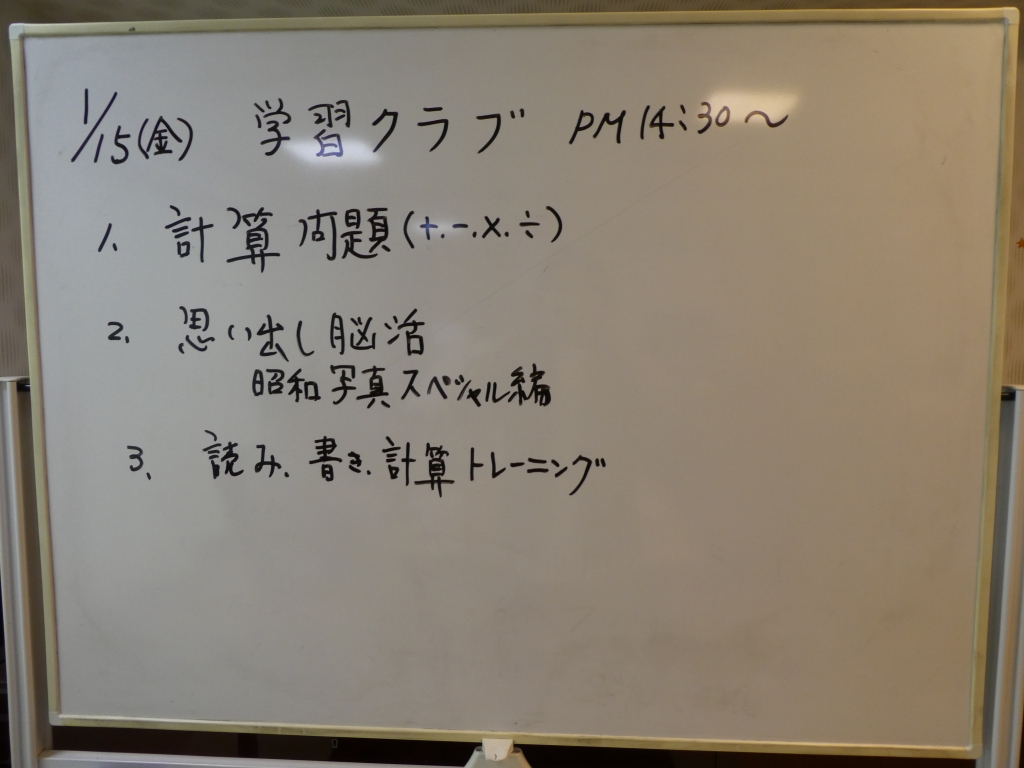 1/15(金) 学習クラブ PM 14:30〜
1. 計算問題(+.-.×.÷)
2. 思い出し脳活
昭和写真スペシャル編
3. 読み.書き.計算トレーニング